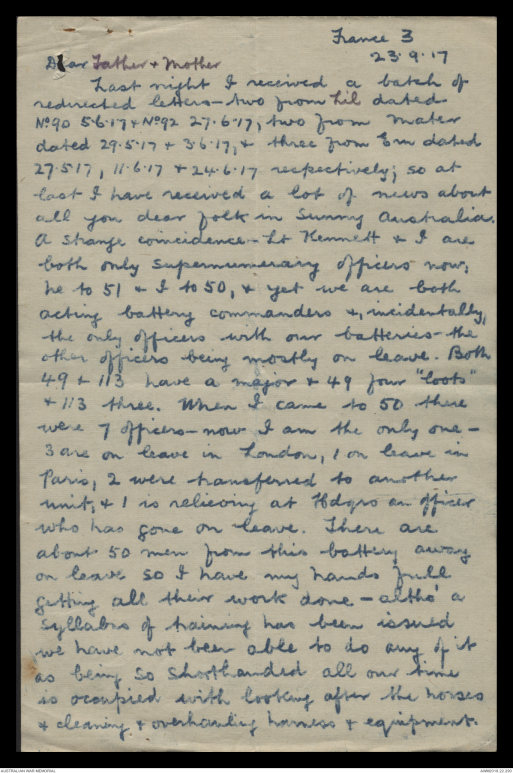 France 3
23.9.17
Dear Father & Mother
Last night I received a batch of
redirected letters - two from Lil dated
Nº90 5.6.17 & Nº92 27.6.17, two from Mater
dated 29.5.17 & 3.6.17, & three from Em dated
27.5.17, 11.6.17 & 24.6.17 respectively; so at
last I have received a lot of news about
all you dear folk in Sunny Australia.
A strange coincidence - Lt Kennett & I are
both only supernumerary officers now,
he to 51 & I to 50, & yet we are both
acting battery commanders &, incidentally,
the only officers with our batteries - the
other officers being mostly on leave. Both
49 & 113 have a major & 49 four "loots"
& 113 three. When I came to 50 there
were 7 officers - now I am the only one -
3 are on leave in London, 1 on leave in
Paris, 2 were transferred to another
unit, & 1 is relieving at Hdqrs an officer
who has gone on leave. There are
about 50 men from this battery away
on leave so I have my hands full
getting all their work done - altho' a
syllabus of training has been issued
we have not been able to do any of it
as being so shorthanded all our time
is occupied with looking after the horses
& cleaning & overhauling harness & equipment.
AUSTRALIAN WAR MEMORIAL